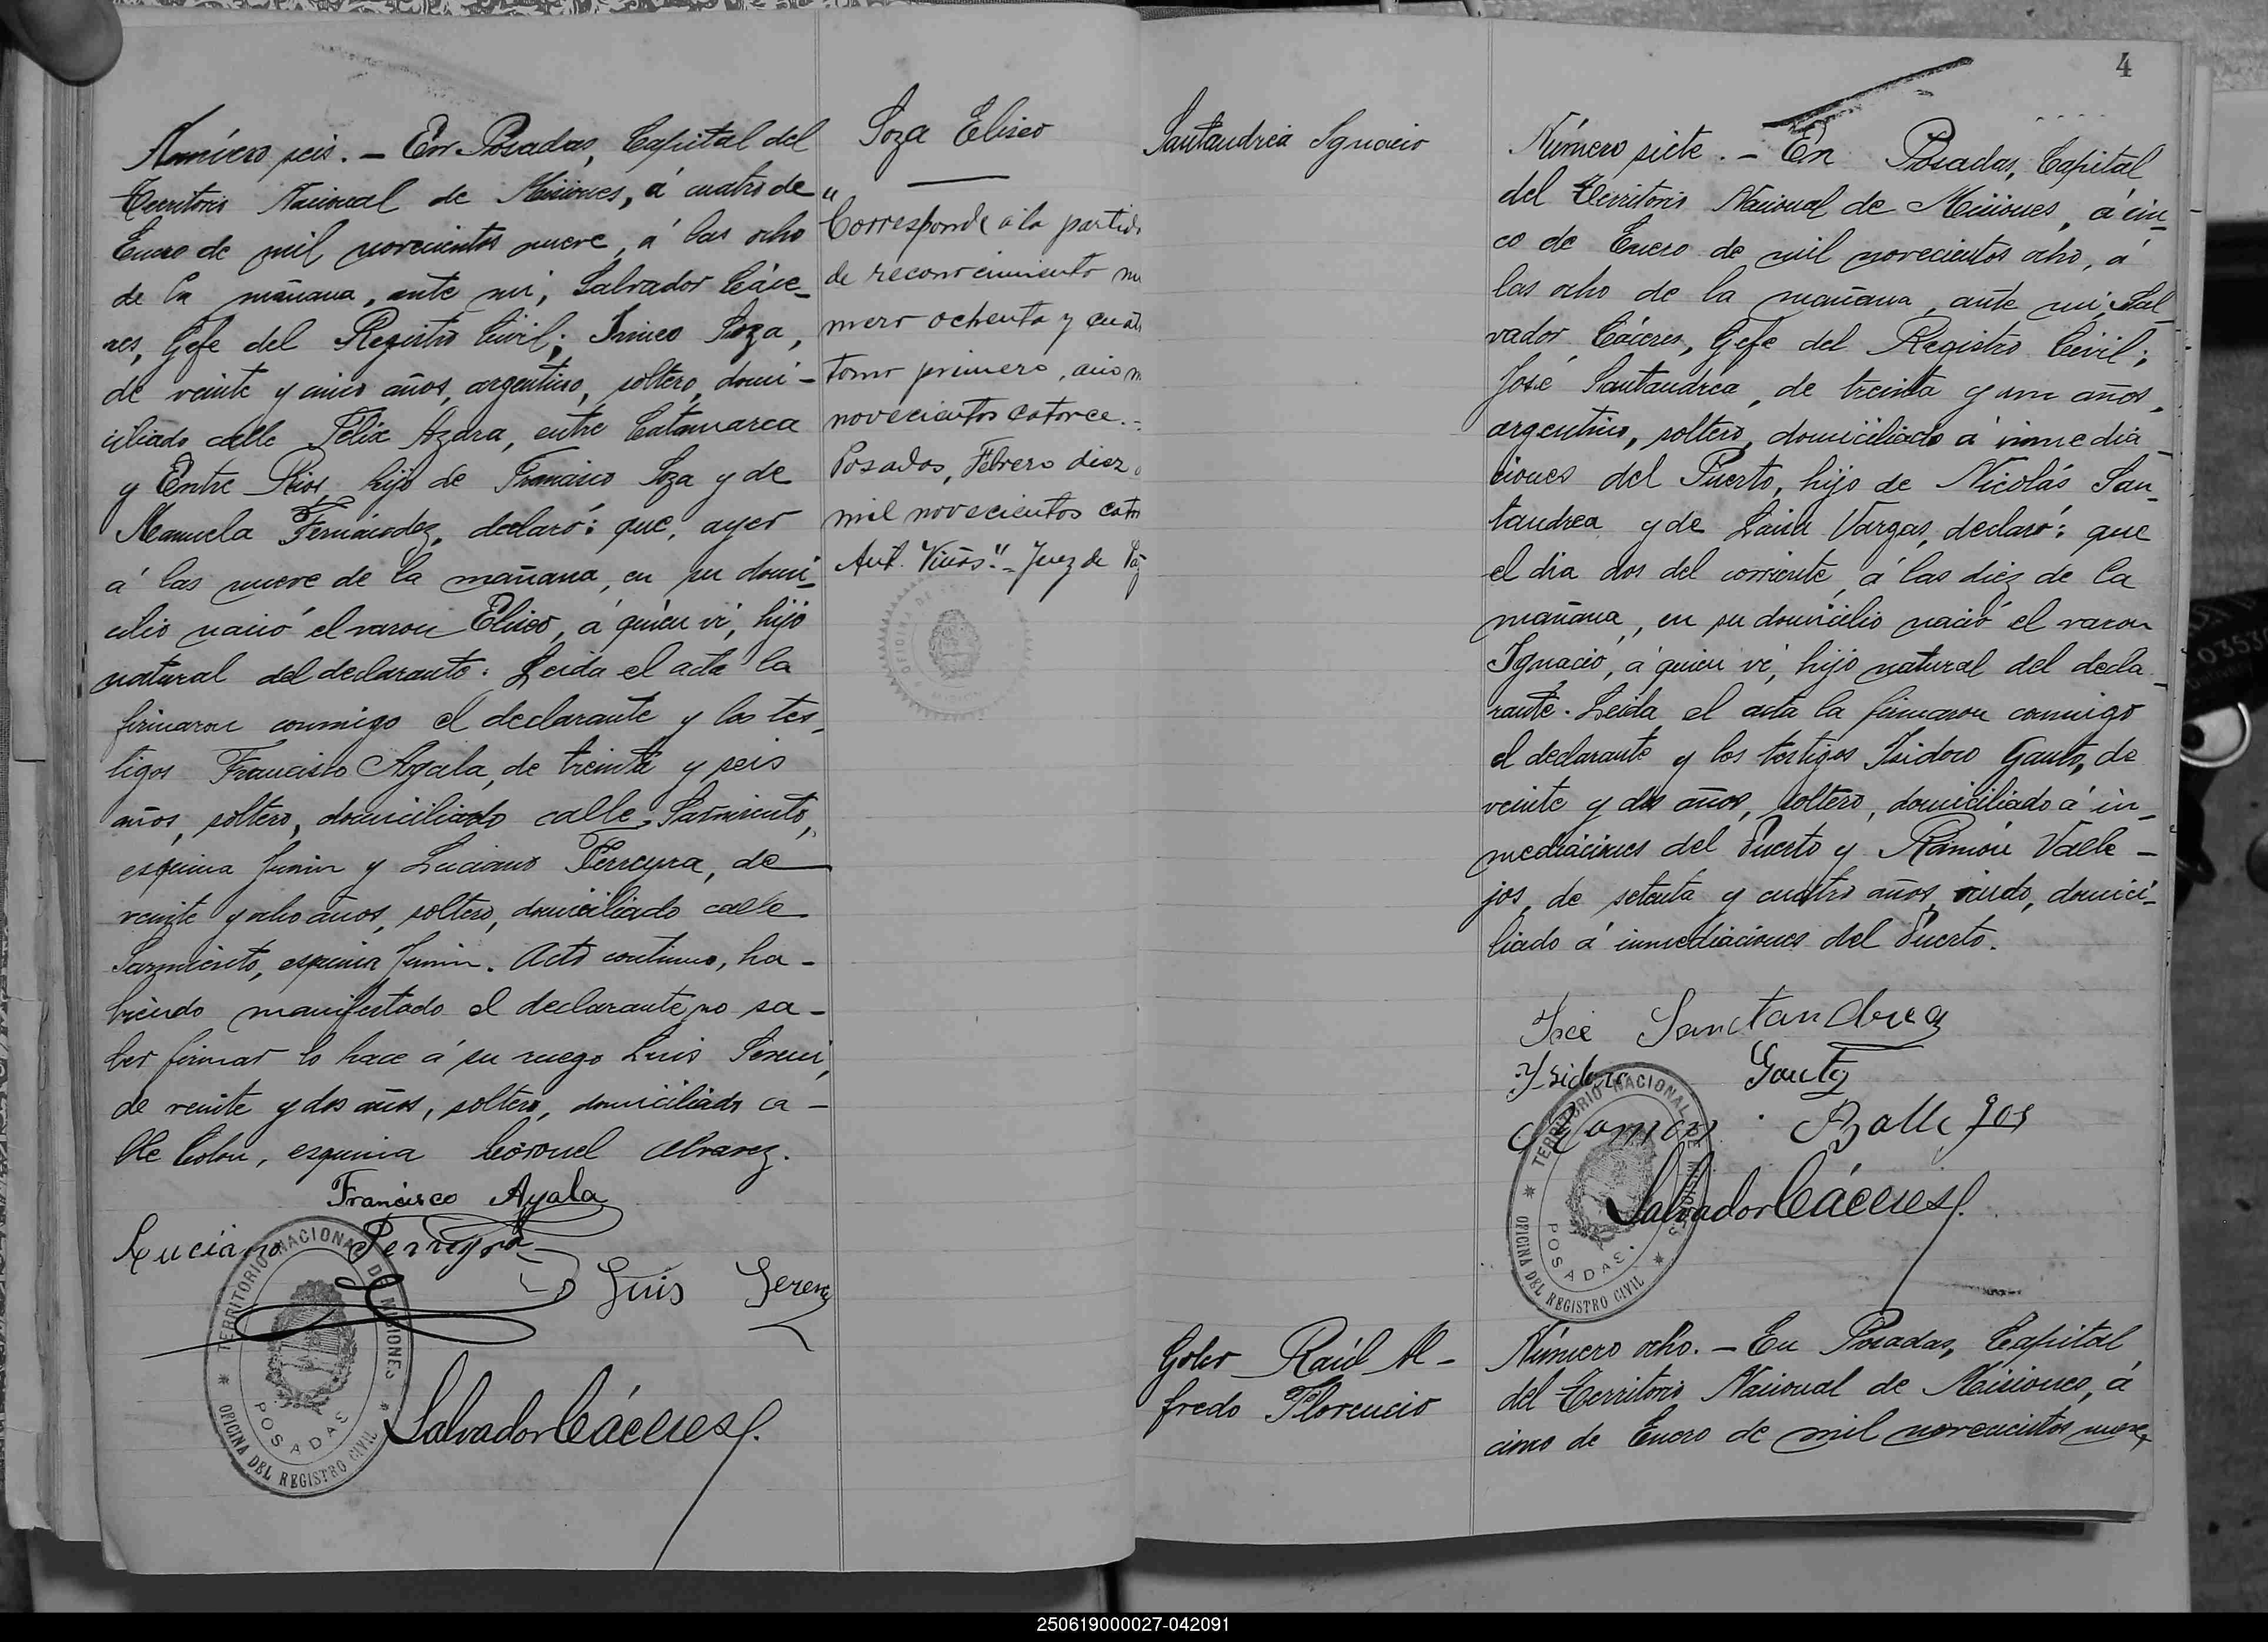 Número seis. – En Posadas, Capital del
Territorio Nacional de Misiones, á cuatro de
Enero de mil novecientos nueve, á las ocho
de la mañana, ante mi, Salvador Cáce-
res, Gefe del Registro Civil; Irineo Soza,
de veinte y cinco años, argentino, soltero, domi-
ciliado calle Félix Azara, entre Catamarca
y Entre Rios, hijo de Francisco Soza y de
Manuela Fernández, declaró: que, ayer
á las nueve de la mañana, en su domi-
cilio nació el varon Eliseo, á quien vi, hijo
natural del declarante: Leida el acta la
firmaron conmigo el declarante y los tes-
tigos Francisco Ayala, de treinta y seis
años, soltero, domiciliado calle Sarmiento,
esquina Junin y Luciano Ferreyra, de
veinte y ocho años, soltero, domiciliado calle
Sarmiento, esquina Junin. Acto continuo, ha-
biendo manifestado el declarante no sa-
ber firmar lo hace á su ruego Luis
de veinte y dos años, soltero, domiciliado ca-
lle Colon, esquina Coronel Alvarez.
Francisco Ayala
Luciano Ferreyra
Luis
Salvador Cáceres
TERRITORIO NACIONAL DE MISIONES
POSADAS
OFICINA DEL REGISTRO CIVIL
Soza Eliseo
"Corresponde á la partid
de reconocimiento nu
mero ochenta y cuat
tomo primero, año m
novecientos catorce.-
Posadas, Febrero diez
mil novecientos cato
Ant. Viñas". - Juez de Paz
Santandrea Ignacio
4
Número siete. – En Posadas, Capital
del Territorio Nacional de Misiones, á cin-
co de Enero de mil novecientos ocho, á
las ocho de la mañana, ante mi, Sal-
vador Cáceres, Gefe del Registro Civil;
José Santandrea, de treinta y un años,
argentino, soltero, domiciliado á inmedia-
ciones del Puerto, hijo de Nicolás San-
tandrea y de Vargas, declaró: que
el dia dos del corriente, á las diez de la
mañana, en su domicilio nació el varon
Ignacio, á quien vi, hijo natural del decla-
rante. Leida el acta la firmaron conmigo
el declarante y los testigos Isidoro Gauto, de
veinte y dos años, soltero, domiciliado á in-
mediaciones del Puerto y Ramón Valle-
jos, de setenta y cuatro años, viudo, domici-
liado á inmediaciones del Puerto.
José Santandrea
Ysidoro Gauto
Ramon Balle jos
Salvador Cáceres
TERRITORIO NACIONAL DE MISIONES
POSADAS
OFICINA DEL REGISTRO CIVIL
Raúl Al-
fredo Florencio
Número ocho. – En Posadas, Capital
del Territorio Nacional de Misiones, á
cinco de Enero de mil novecientos nueve,
250619000027-042091